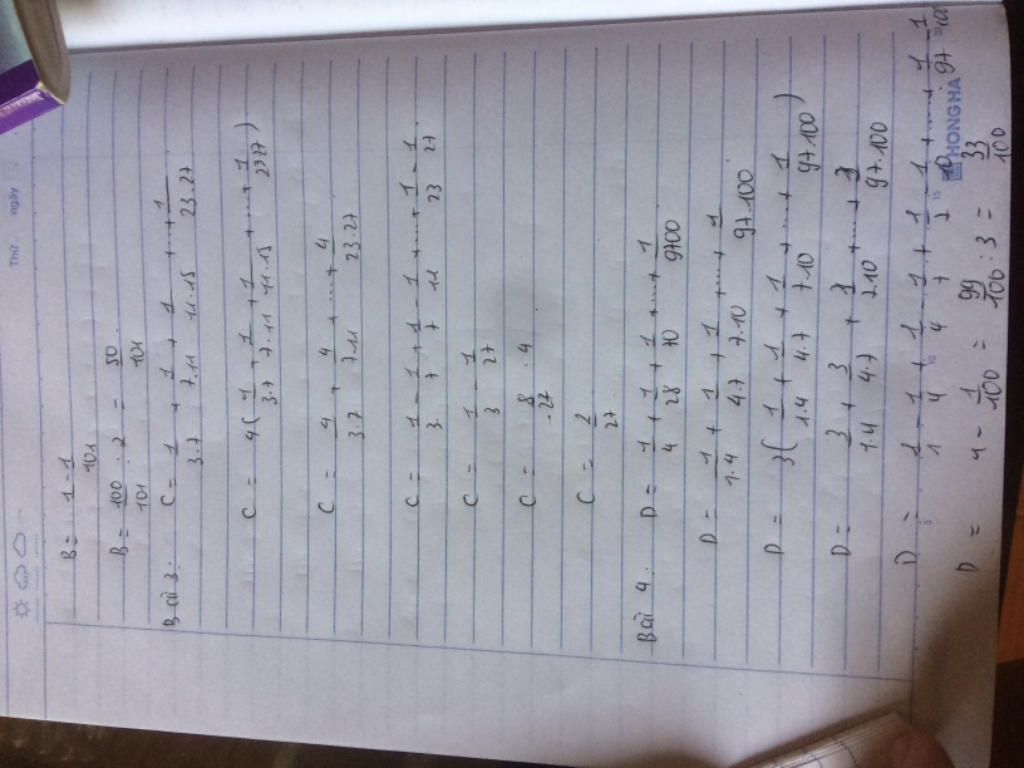 Thứ ngày
B = 1 - 1/101
B = 100/101 : 2 = 50/101
Bài 3. C = 1/3.7 + 1/7.11 + 1/11.15 + ... + 1/23.27
C = 4(1/3.7 + 1/7.11 + 1/11.15 + ... + 1/23 27)
C = 4/3.7 + 4/7.11 + .... + 4/23.27
C = 1/3 - 1/7 + 1/7 - 1/11 + .... + 1/23 - 1/27
C = 1/3 - 1/27
C = 8/27 : 4
C = 2/27
Bài 4. D = 1/4 + 1/28 + 1/70 + ... + 1/9700
D = 1/1.4 + 1/4.7 + 1/7.10 + .... + 1/97.100
D = 3(1/1.4 + 1/4.7 + 1/7.10 + .... + 1/97.100)
D = 3/1.4 + 3/4.7 + 3/7.10 + .... + 3/97.100
D = 1/1 - 1/4 + 1/4 - 1/7 + 1/7 - 1/10 + .... + 1/97 - 1/100
5 10 15 20
HONG HA
D = 1 - 1/100 = 99/100 : 3 = 33/100